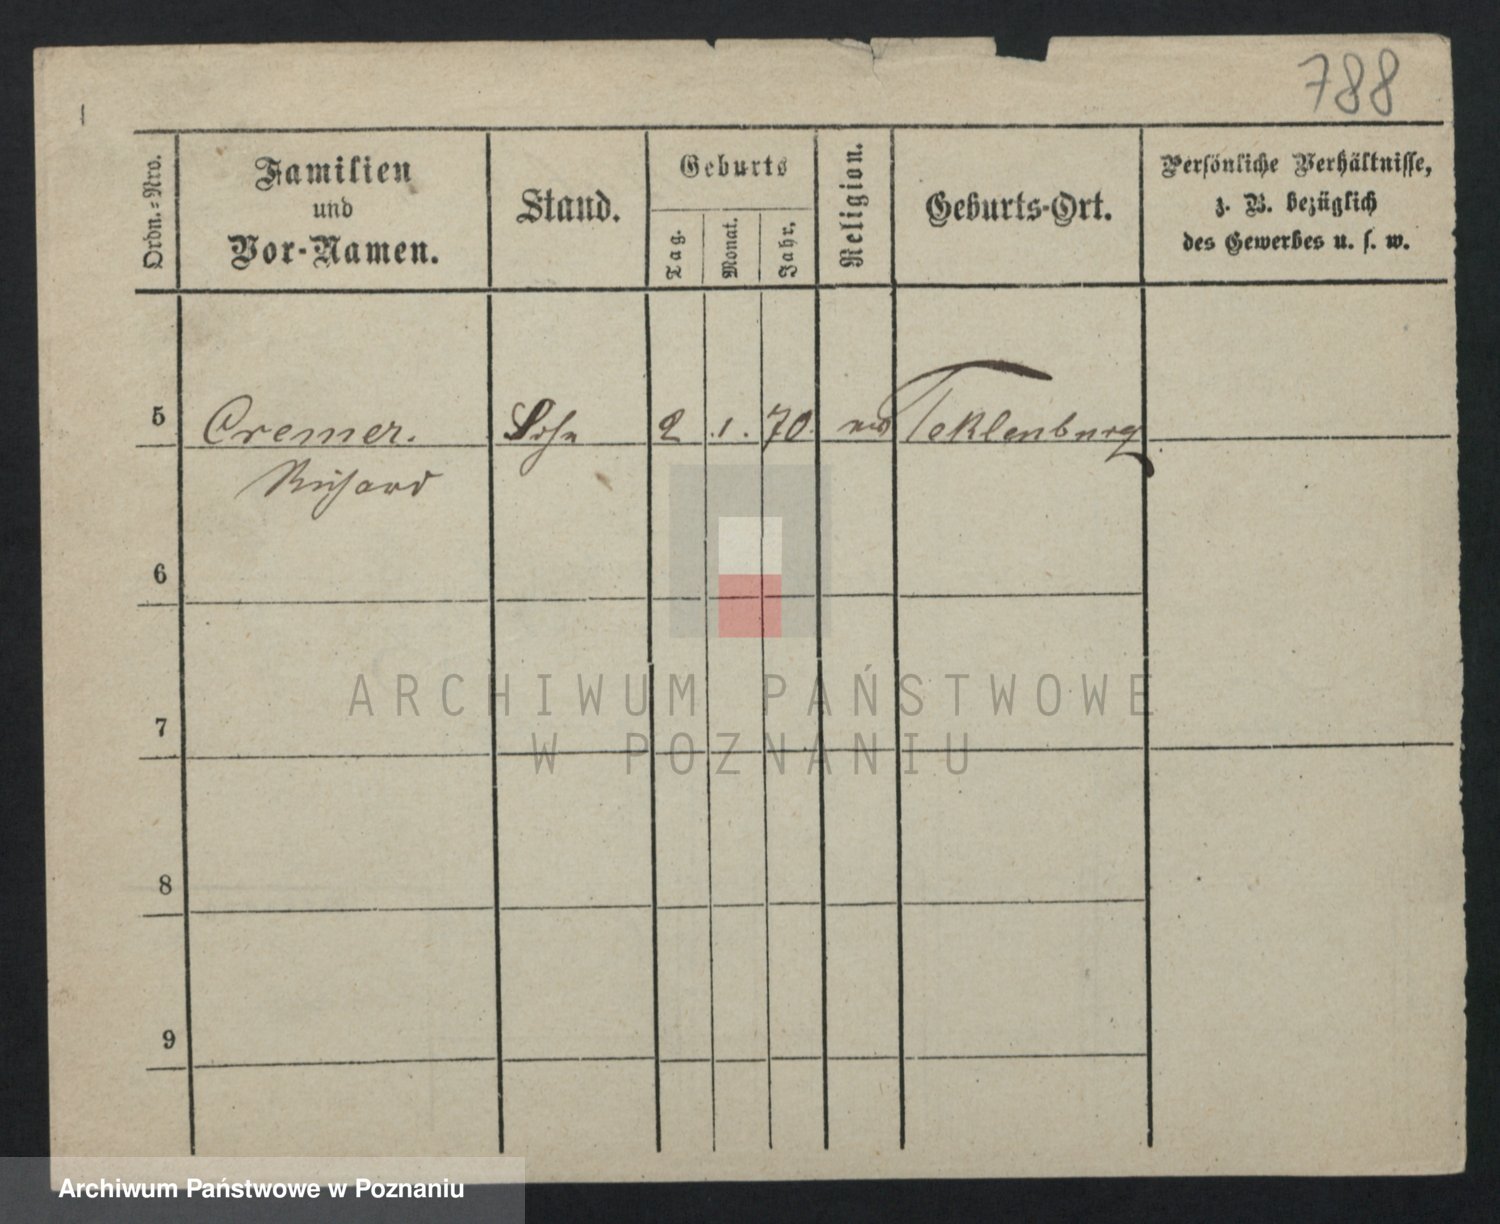 788
1
Ordn.-Nro.
Familien
und
Vor-Namen.
Stand.
Geburts
Tag.
Monat.
Jahr.
Religion.
Geburts-Ort.
Persönliche Verhältnisse,
z. B. bezüglich
des Gewerbes u. s. w.
5 Cremer. Sohn 2 .1. 70. Teklenburg
Richard
6
ARCHIWUM PAŃSTWOWE
7
W POZNANIU
8
9
Archiwum Państwowe w Poznaniu